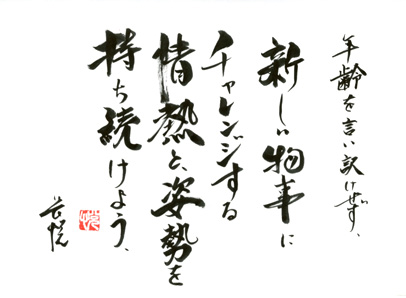 年齢を言い訳けせず、
新しい物事に
チャレンジする
情熱と、姿勢を
持ち続けよう、